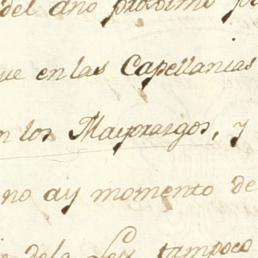 del año proximo
que en las Capellanias
en los Mayorazgos, y
no ay momento de
de la Ley tampoco